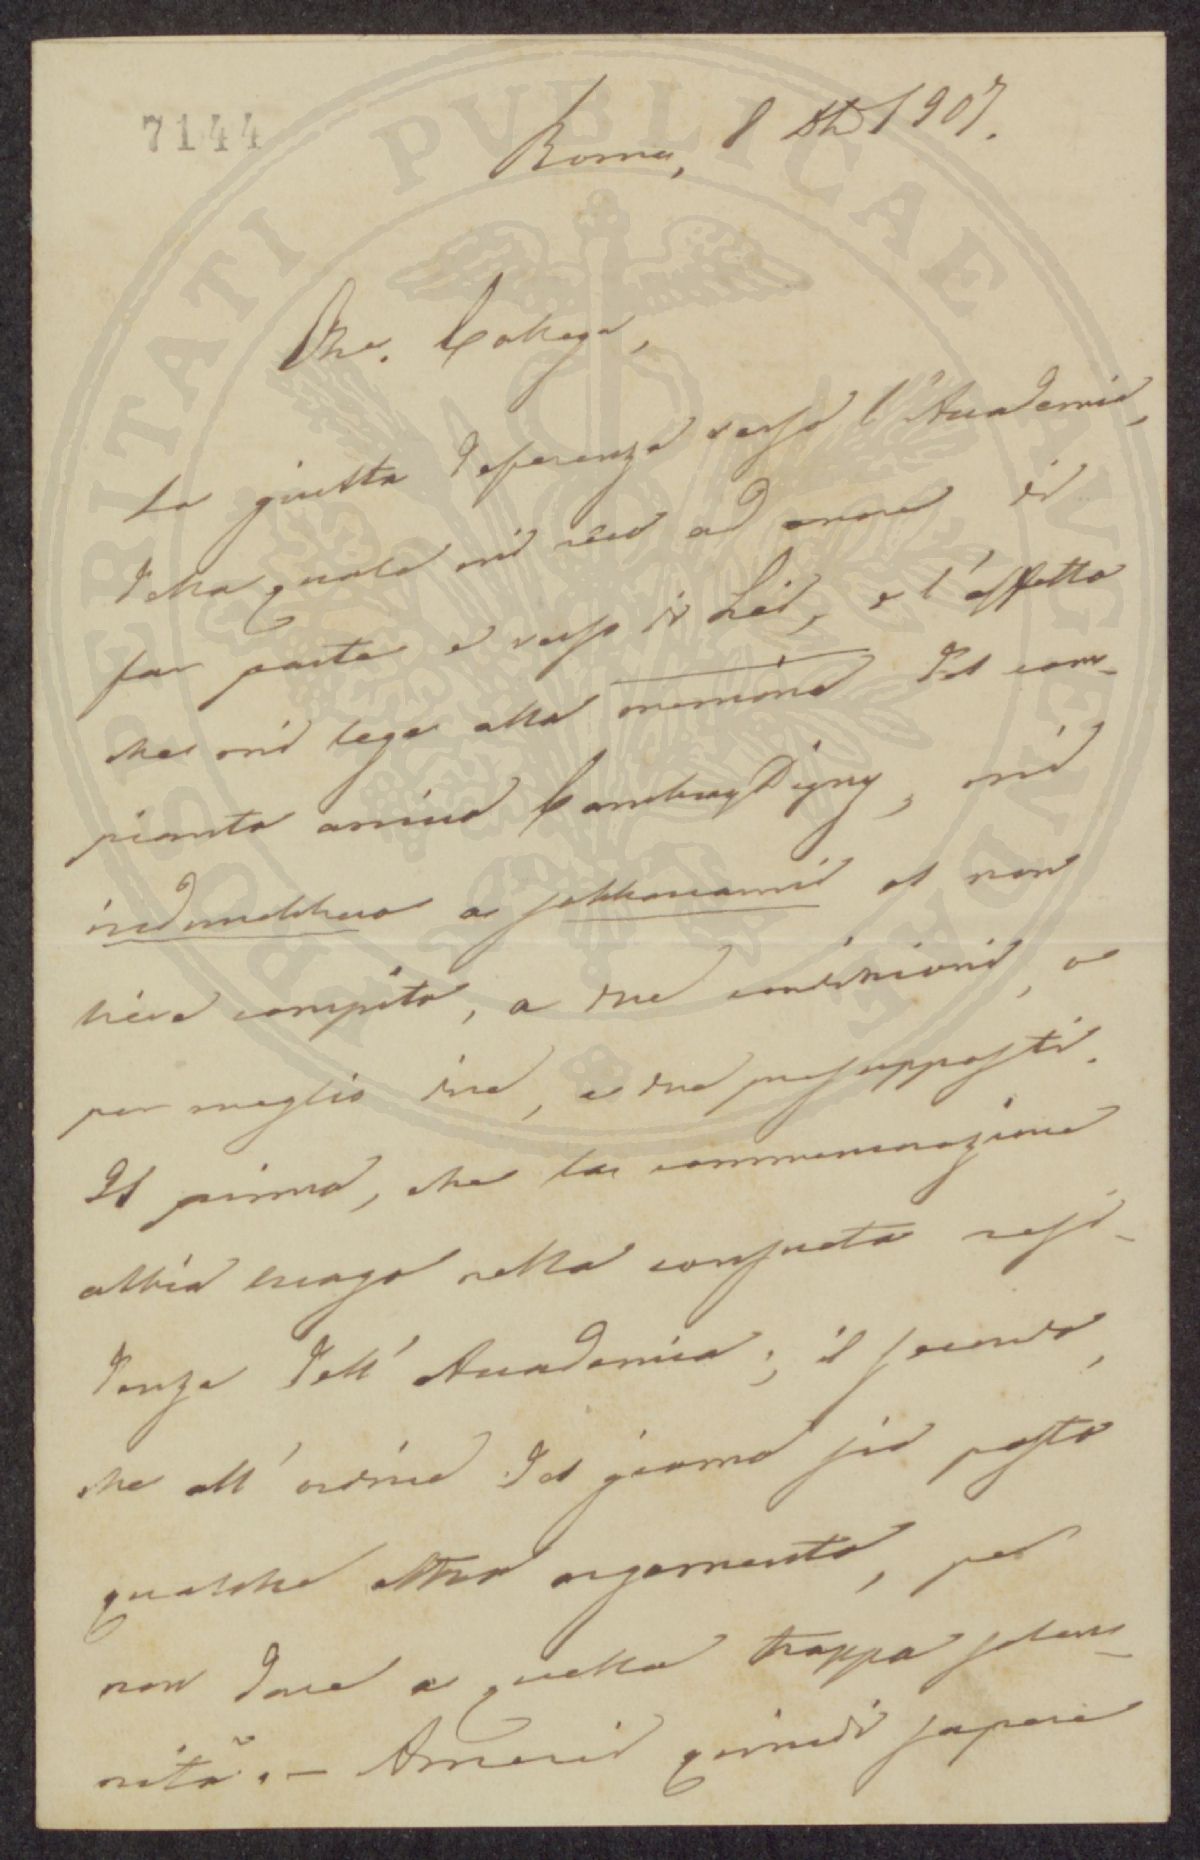 7144
Roma, 8 1907.
On. Collega,
La giusta deferenza verso l'Accademia,
della quale mi reco ad onore di
far parte e verso di Lei, e l'affetto
che mi lega alla memoria del com-
pianto amico Cambray Digny, mi
indurrebbero a sobbarcarmi al non
lieve compito, a due condizioni, o
per meglio dire, a due presupposti.
Il primo, che la commemorazione
abbia luogo nella consueta resi-
denza dell'Accademia; il secondo,
che all'ordine del giorno sia posto
qualche altro argomento, per
non dare a quella troppa solen-
nità. — Amerei quindi sapere
PROSPERITATI PVBLICAE AVGENDAE